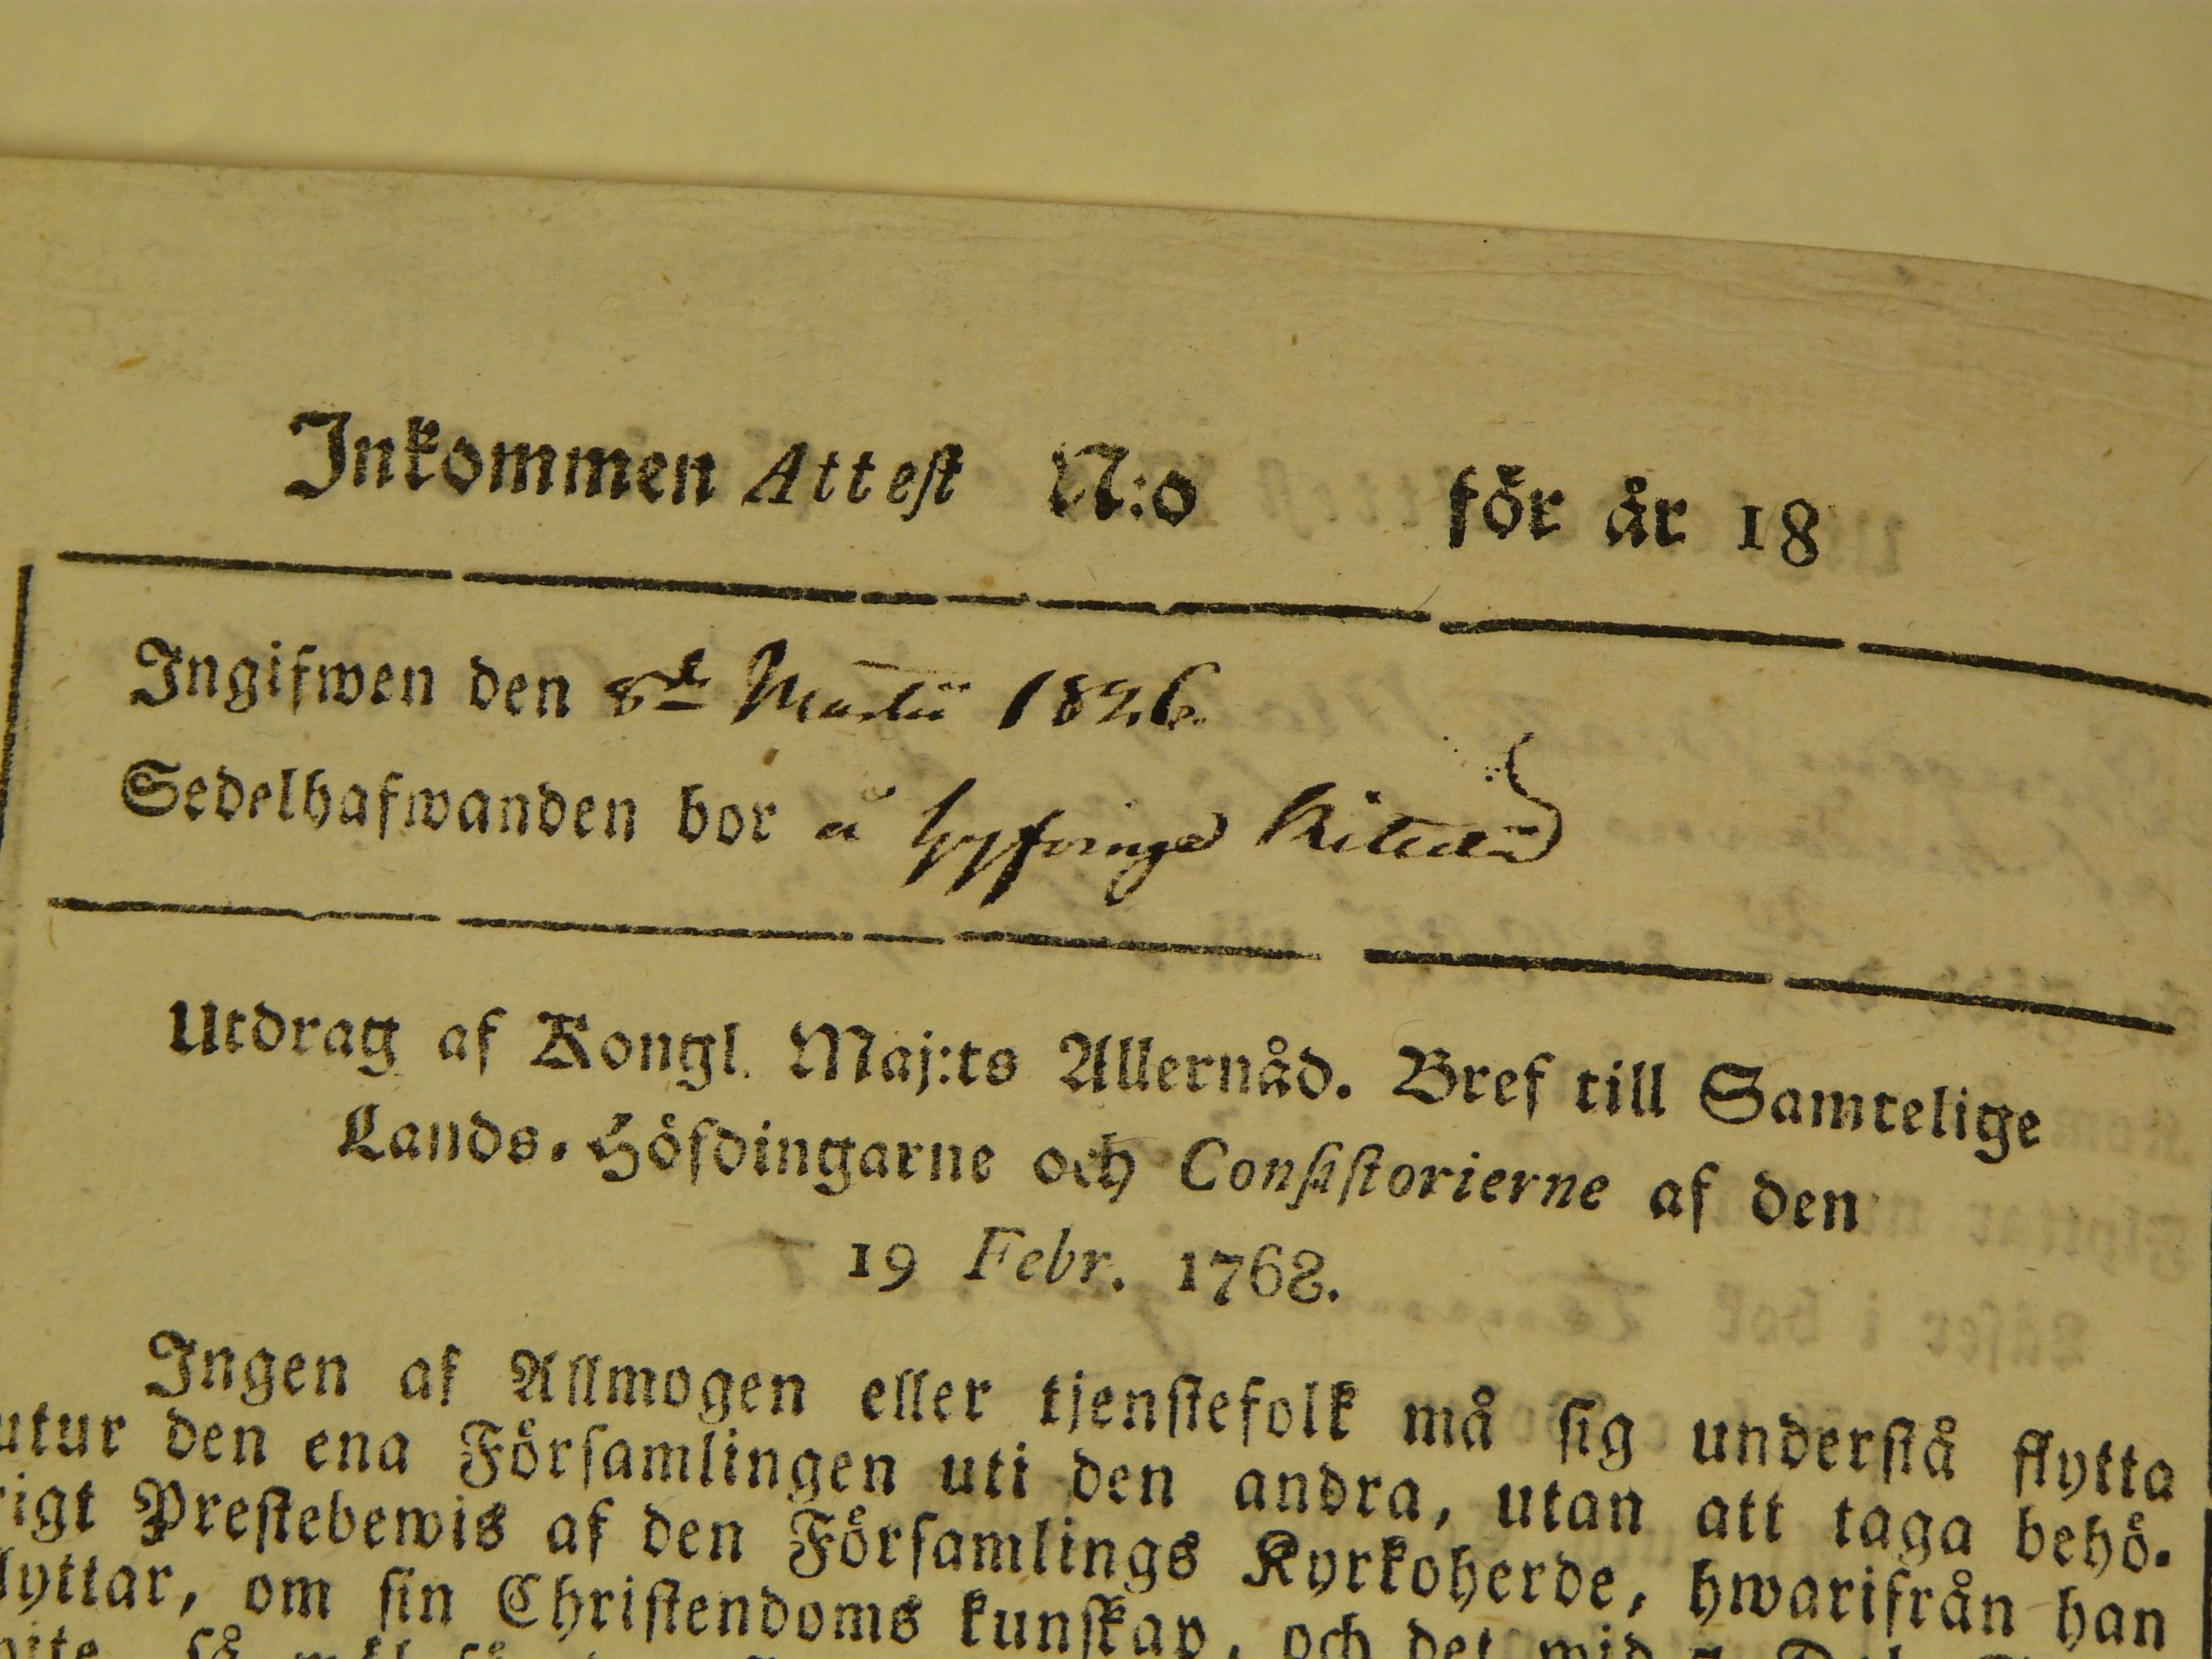 Inkommen Attest N:o för år 18
Ingifwen den 8de Martii 1826.
Sedelhafwanden bor å
Utdrag af Kongl. Maj:ts Allernåd. Bref till Samtelige
Lands-Höfdingarne och Consistorierne af den
19 Febr. 1768.
Ingen af Allmogen eller tjenstefolk må sig understå flytta
utur den ena Församlingen uti den andra, utan att taga behö-
rigt Prestebewis af den Församlings Kyrkoherde, hwarifrån han
flyttar, om sin Christendoms kunskap, och det wid